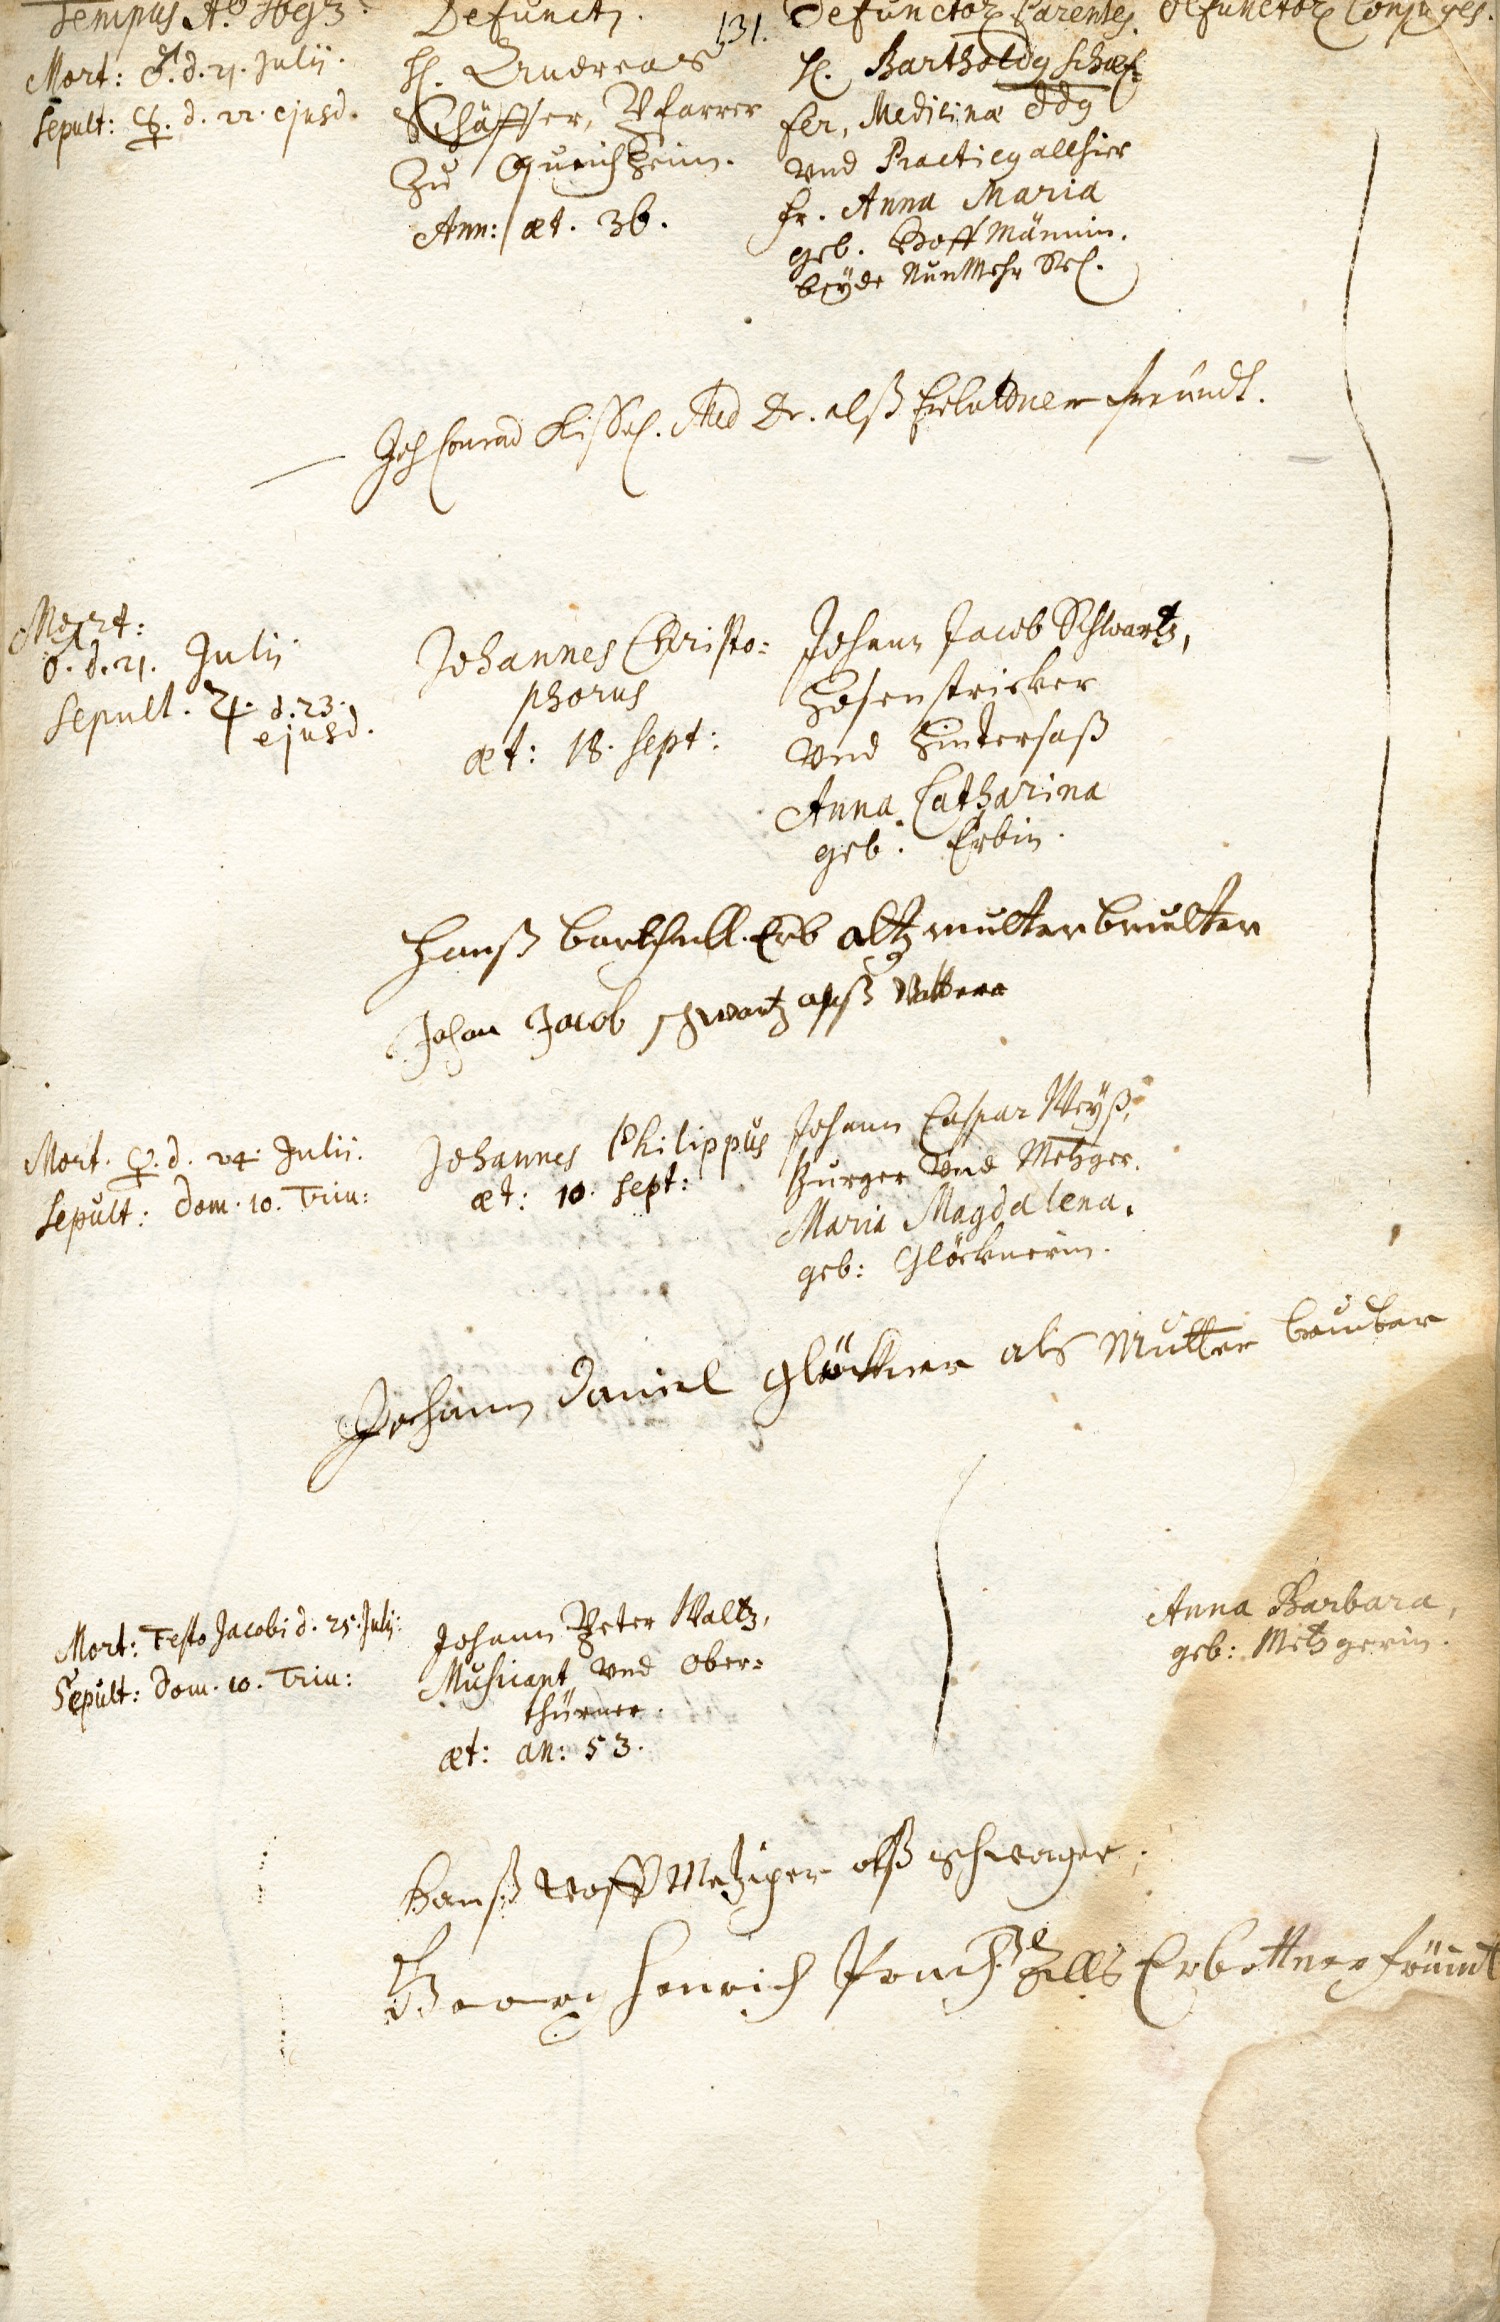 Tempus Aō. 1693.
Defuncti.
131.
Defunctor Parentes.
Defunctor Conjuges.
Mort: ♂. d. 21. Julii.
Sepult: ☿. d. 22. ejusd.
H. Andreas
Schäffer, Pfarrer
zu Queichheim.
Ann: æt. 36.
H. Bartholdg Schæf=
fer, Medicinæ Ddg
vnd Practicg allhier
Fr. Anna Maria
geb. Hoffmännin.
beyde NunMehr Sel.
Joh Conrad Kissel. Med Dr. alß Freundt.
Mort:
♂. d. 21. Julii
Sepult. ♃. d. 23.
ejusd.
Johannes Christo=
phorus
æt: 18. Sept:
Johann Jacob Schwartz,
Hosenstricker
vnd Hintersaß
Anna Catharina
geb. Erbin.
Hanß Barthell. Erb alß mutter bruder
Johan Jacob schwartz alß Vatter
Mort. ♀. d. 24. Julii.
Sepult: Dom. 10. Trin:
Johannes Philippus
æt: 10. Sept:
Johann Caspar Weyß,
Burger vnd Metzger.
Maria Magdalena.
geb: Glöcknerin.
Johann Daniel Glöckner als Mutter bruder
Mort: Festo Jacobi d. 25. Julij:
Sepult: Dom. 10. Trin:
Johann Peter Waltz,
Musicant vnd Ober=
thürner.
æt: an: 53.
Anna Barbara,
geb: Metzgerin.
Hanß Wolff Metzger alß schwager
Georg Henrich Alls Erbettner fröundt